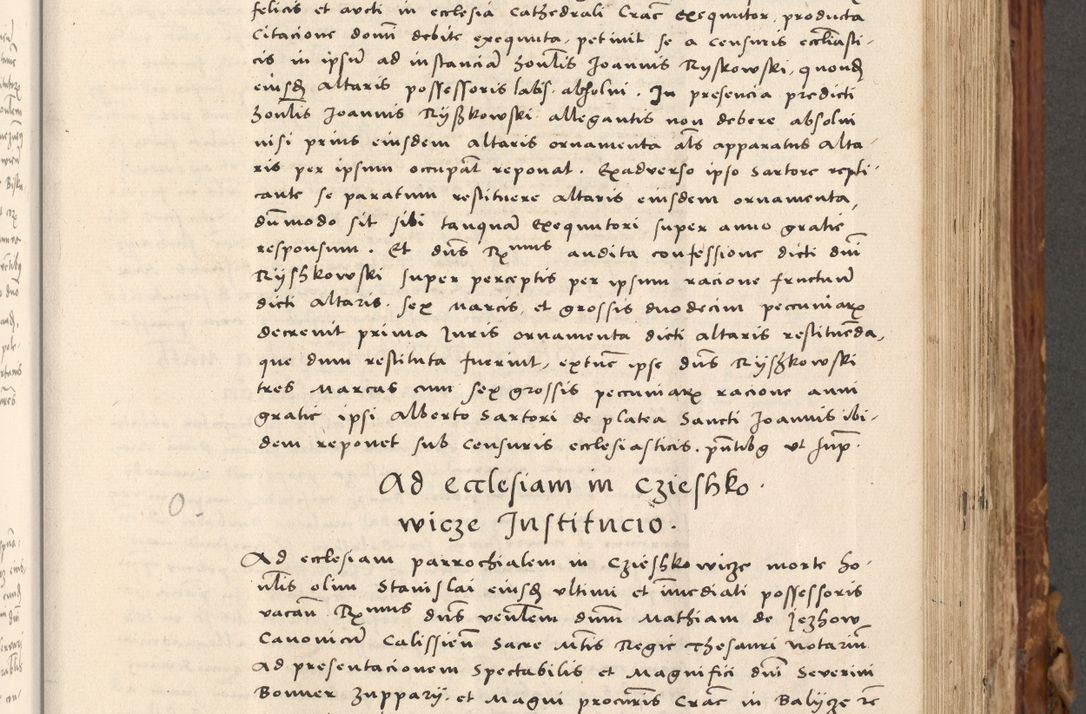 felicis et aucti in ecclesia Cathedrali Crac̄ exequutor, producta
Citacione domi debite exequuta, petiuit se a censuris eccl̄iasti-
cis in ipsum̄ ad instanciam̄ hon̄lis Joannis Ryskowski, quond̄
eiusd̄ altaris possessoris labs. absolui. In presencia predicti
hon̄lis Joannis Ryszkowski allegantis non debere absolui
nisi prius eiusdem altaris ornamenta al̄s apparatus alta-
ris per ipsum occupat̄ reponat. Exadverso ipso Sartore repli-
cante se paratum restituere altaris eiusdem ornamenta,
dum̄modo sit sibi tanquam̄ exequutori super anno gratie
responsum. Et dn̄s Rmus audita confessione dicti dn̄i
Ryshkowski super perceptis per ipsum racione fructuum̄
dicti altaris. sex marcis et grossis duodecim pecuniarꝝ
decreuit prima Iuris ornamenta dicti altaris restituēda,
que dum restituta fuerint, extūc ipse dn̄s Ryszkowski
tres marcas cum sex grossis pecuniarꝝ racione anni
gratie ipsi Alberto Sartori de platea Sancti Joannis ibi-
dem reponet sub censuris ecclesiasticis. pn̄tibꝫ ut sup̄.
Ad ecclesiam in Czieshko-
wicze Institucio.
Ad ecclesiam parrochialem in Czieshkowicze morte ho-
n̄lis olim Stanislai eiusd̄ ultimi et im̄mediati possessoris
vacan̄ Rmus dn̄s ven̄lem dn̄m Mathiam de Jezhow
Canonicum̄ Calissien̄ Sacre M̄tis Regie Thesauri notarium̄
Ad presentacionem Spectabilis et Magnifici dn̄i Severini
Bonner Zupparij. et Magni procur̄is Crac̄ in Balijcze rc̄